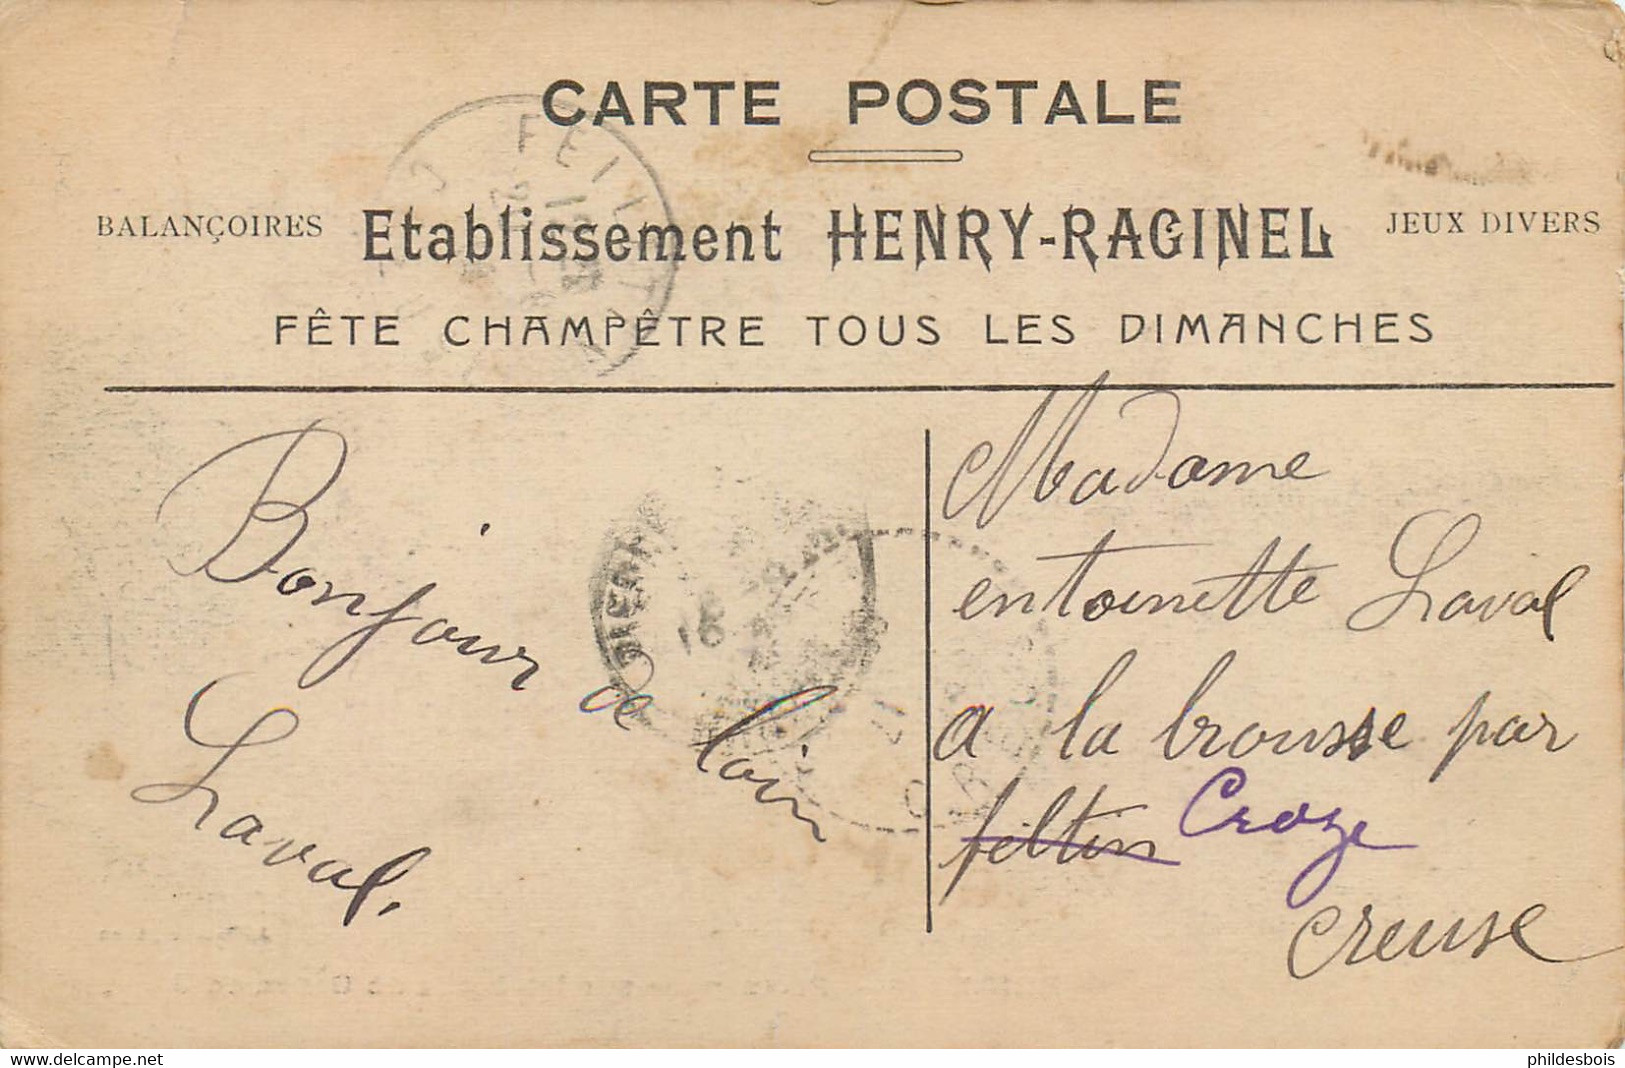 CARTE POSTALE
BALANÇOIRES Etablissement HENRY-RAGINEL JEUX DIVERS
FÊTE CHAMPÊTRE TOUS LES DIMANCHES
Bonjour de loin
Laval.
Madame
entoinette Laval
a la brousse par
feltin Croze
Creuse
FELLETIN
16
www.delcampe.net
phildesbois